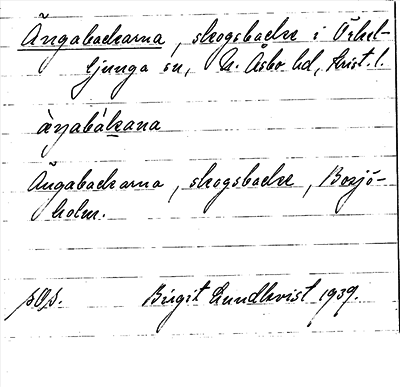 Ängabackarna, skogsbacke i Örkel-
ljunga sn, N. Åsbo hd, Krist. l.
Ängabackarna, skogsbacke, Boxjö-
holm.
Birgit Lundkvist 1939.